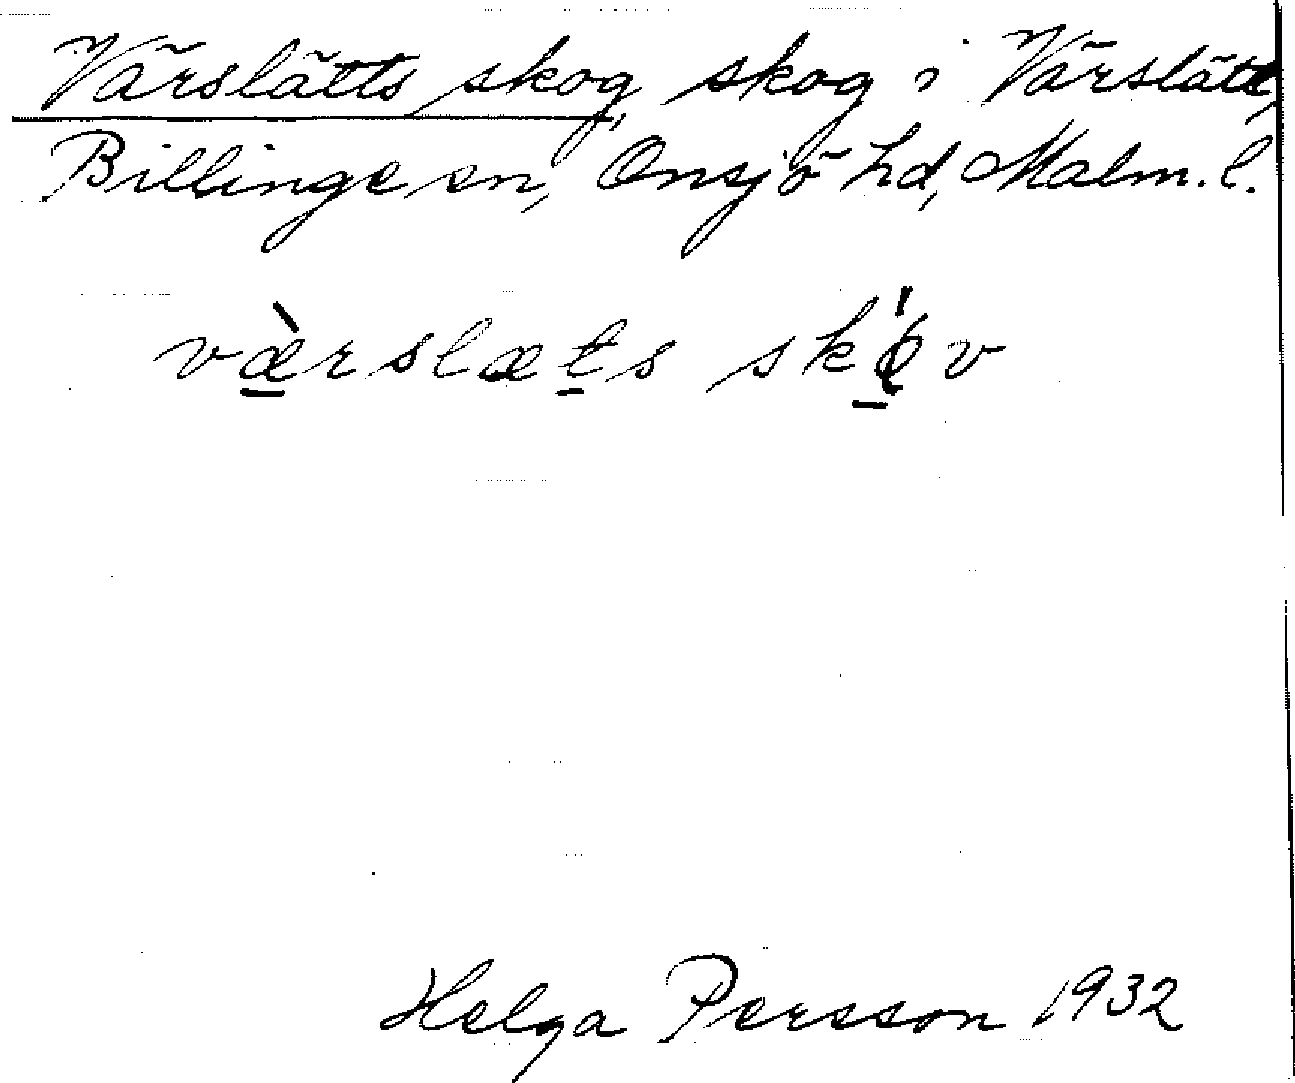 Värslätts skog, skog i Värslätt,
Billinge sn, Onsjö hd, Malm. l.
væ̠̀rslæt̠s skǫ̠́v
Helga Persson 1932